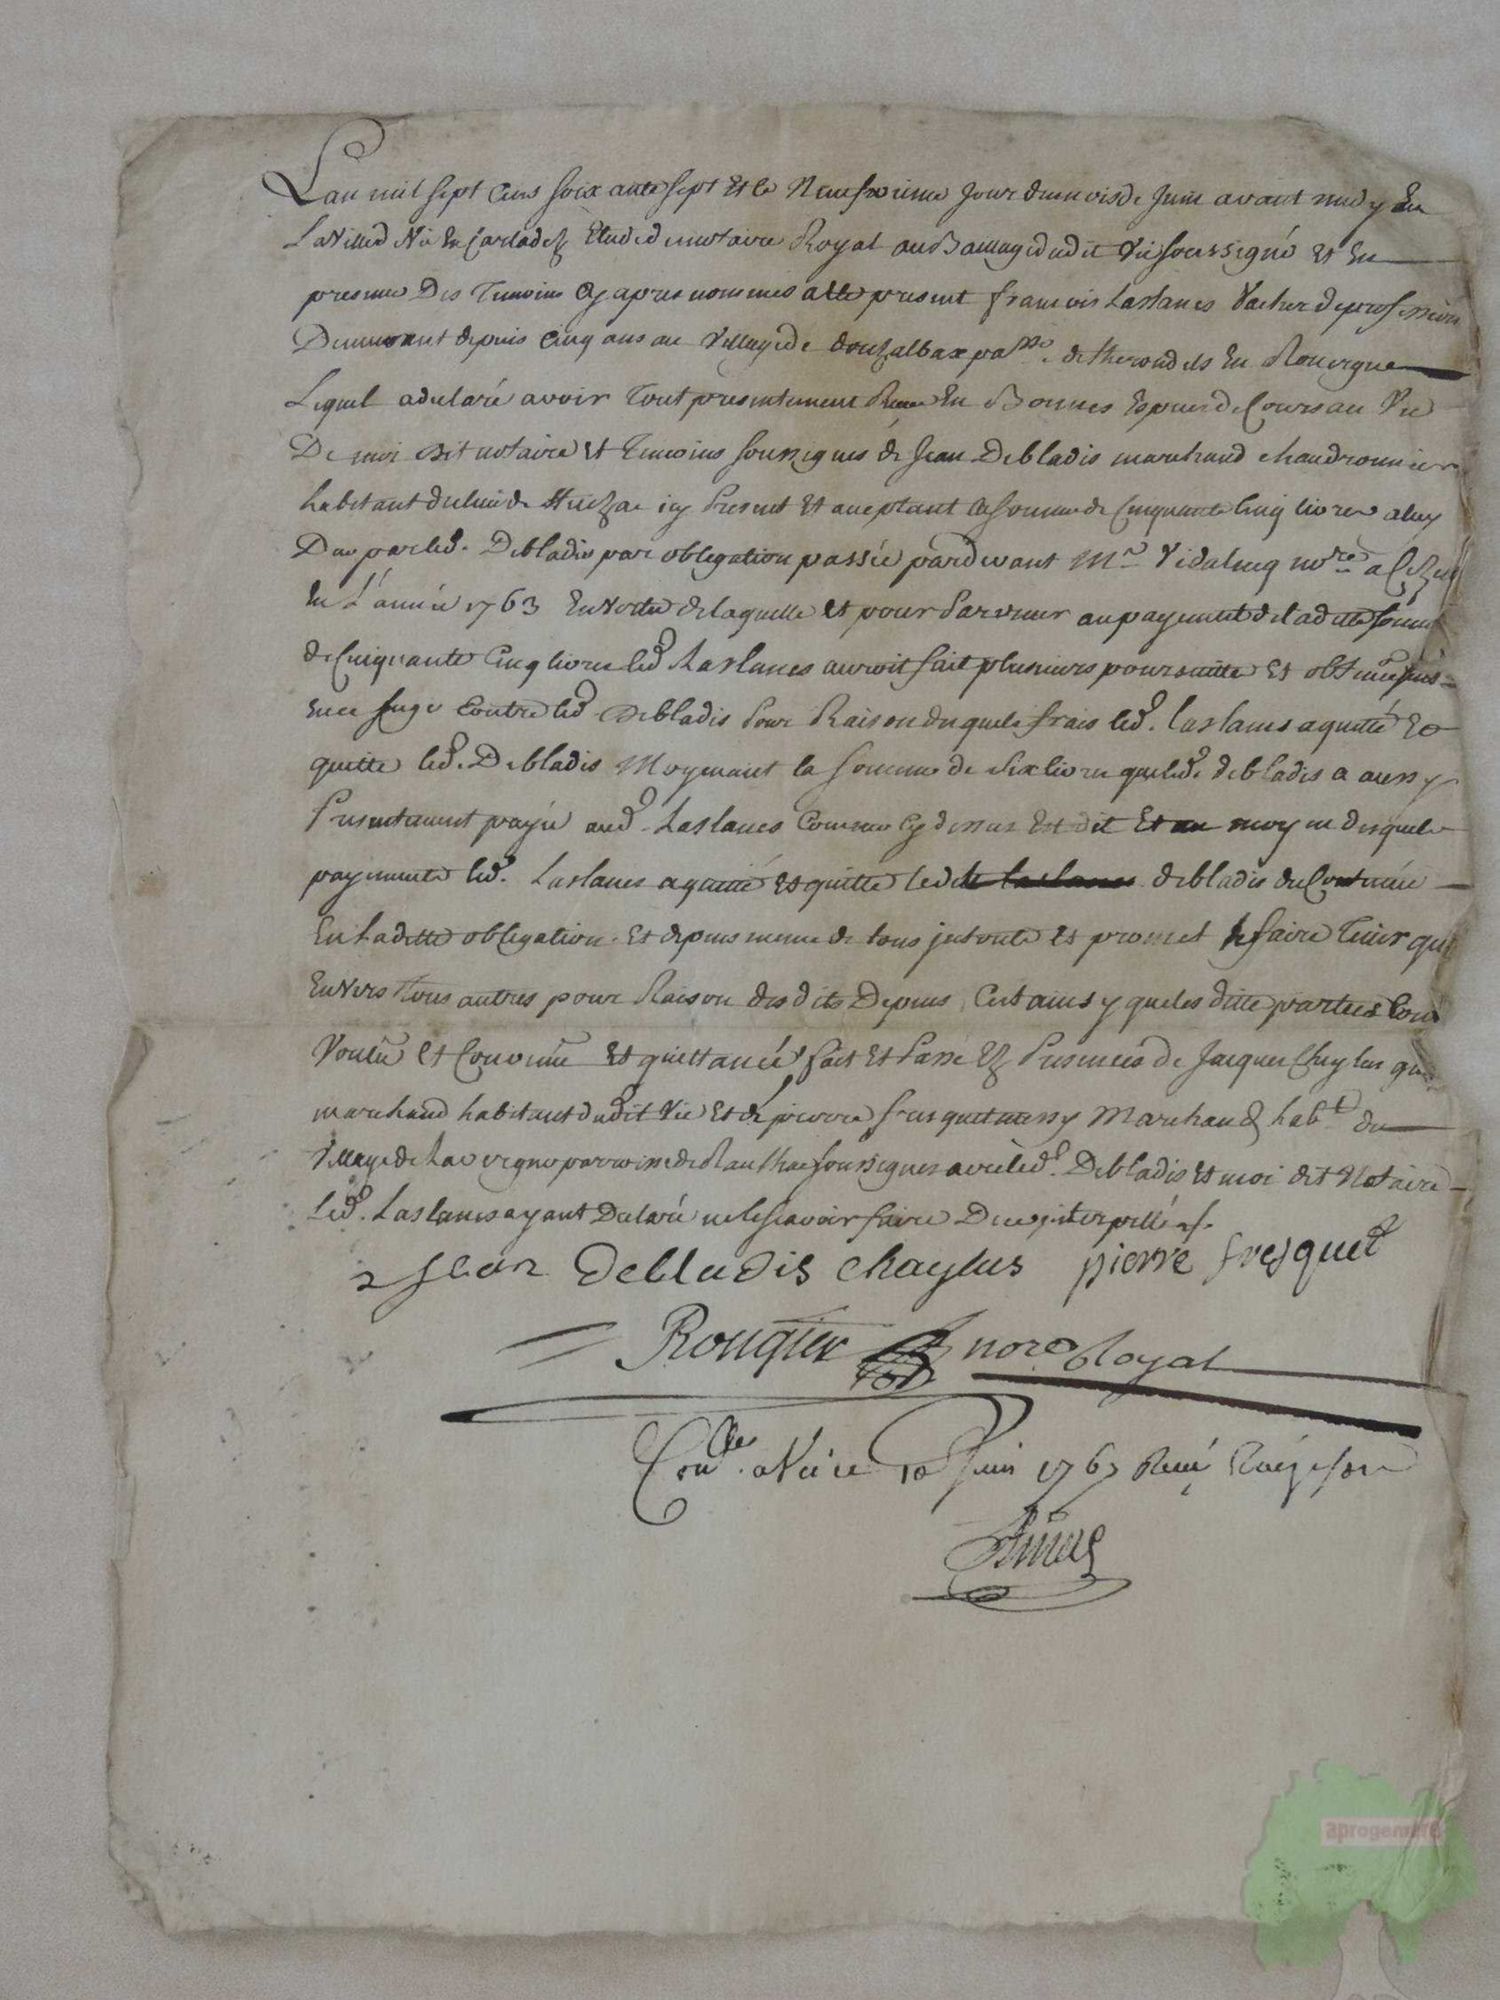 Lan mil sept cens soixante sept et le neufvieme jour du mois de juin avant midy en
La ville de Vic en Carladez Etude de notaire Royal au Bailliage dudit Vic soussigné et en
presence des temoins cy apres nommes a ete present francois Laslanes Vacher de profession
Demeurant depuis cinq ans au village de douzalbax pa.sse de therondels en Rouergue
Lequel a declaré avoir tout presentement Recu En Bonnes Especes de Cours au Vu
De moi dit notaire et temoins soussignés de Jean Debladis marchand chaudronnier
habitant du lieu de icy present et aceptant la somme de cinquante cinq livres a luy
Due par led. Debladis par obligation passée pardevant Mr. Vidalincq no.re a
en L'année 1763 En vertu de laquelle et pour parvenir au payement de la ditte somme
de cinquante cinq livres led. Laslanes auroit fait plusieurs poursuittes et obtenu sent
ence contre led. Debladis pour Raison duquels frais led. Laslanes a quitté Et
quitte led. Debladis Moyenant la somme de six livres que led. debladis a aussy
presentement payée aud. Laslanes comme cy dessus est dit Et au moyen desquels
payements led. Laslanes a quitté et quitte led de Laslanes debladis du Contenu
En La ditte obligation et depens meme de tous juqu et promet le faire tenir qui
Envers tous autres pour Raison desdits Depens Cert ainsy que les ditte parties l'ont
Voulu et Convenu et quittancé, fait et Passé Ez presences de Jacques Cheylus
marchand habitant dudit Vic et de pierre fresquet aussy Marchand hab.t du
Village de Lavergne parroisse de Raulhac soussignes avec led. Debladis et moi dit Notaire
Led. Laslanes ayant Declaré ne le scavoir faire De ce interpellé
Jean Debladis chaylus pierre fresquet
Rougier nore Royal
Con.lle a Vic le 10 juin 1767 Recu